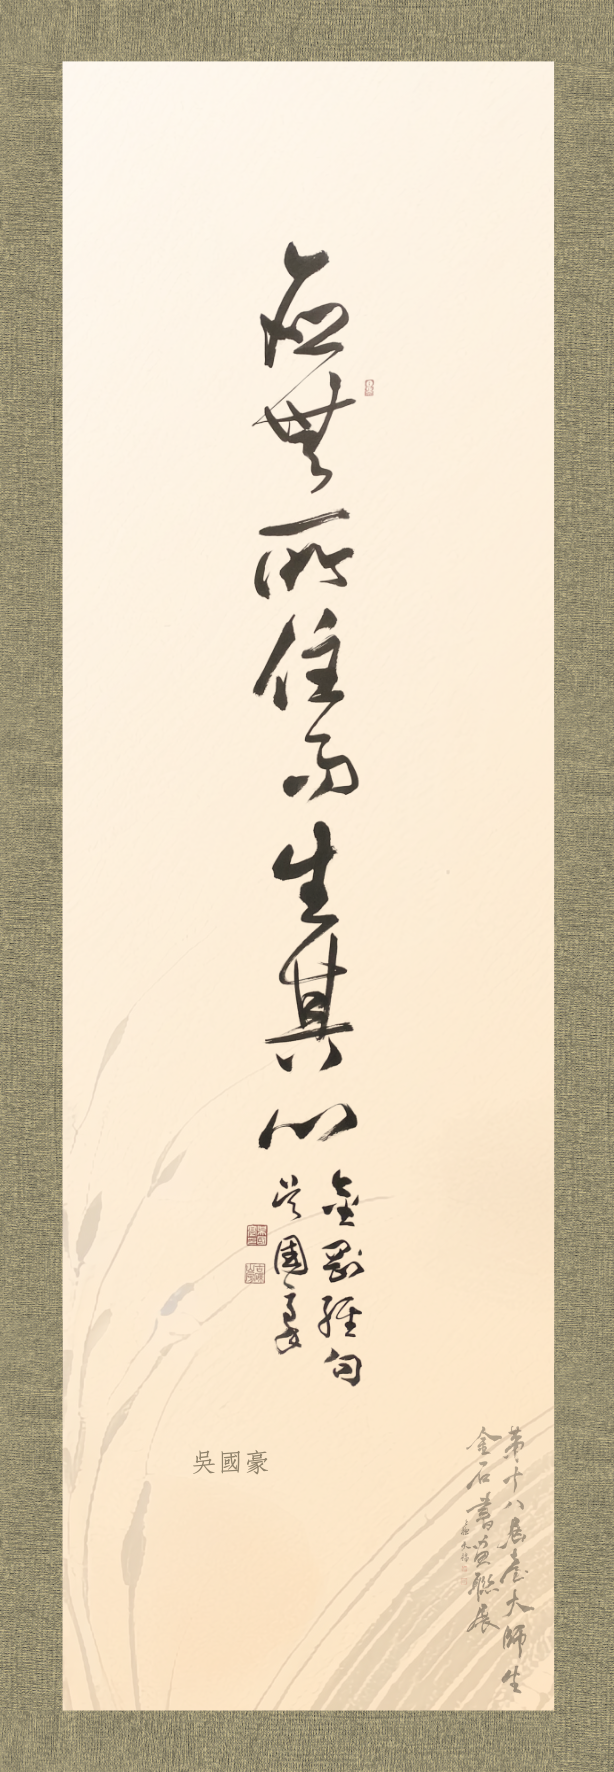 應無所住而生其心
金剛經句
吳國豪
吳國豪
第十八屆臺大師生
金石書畫聯展